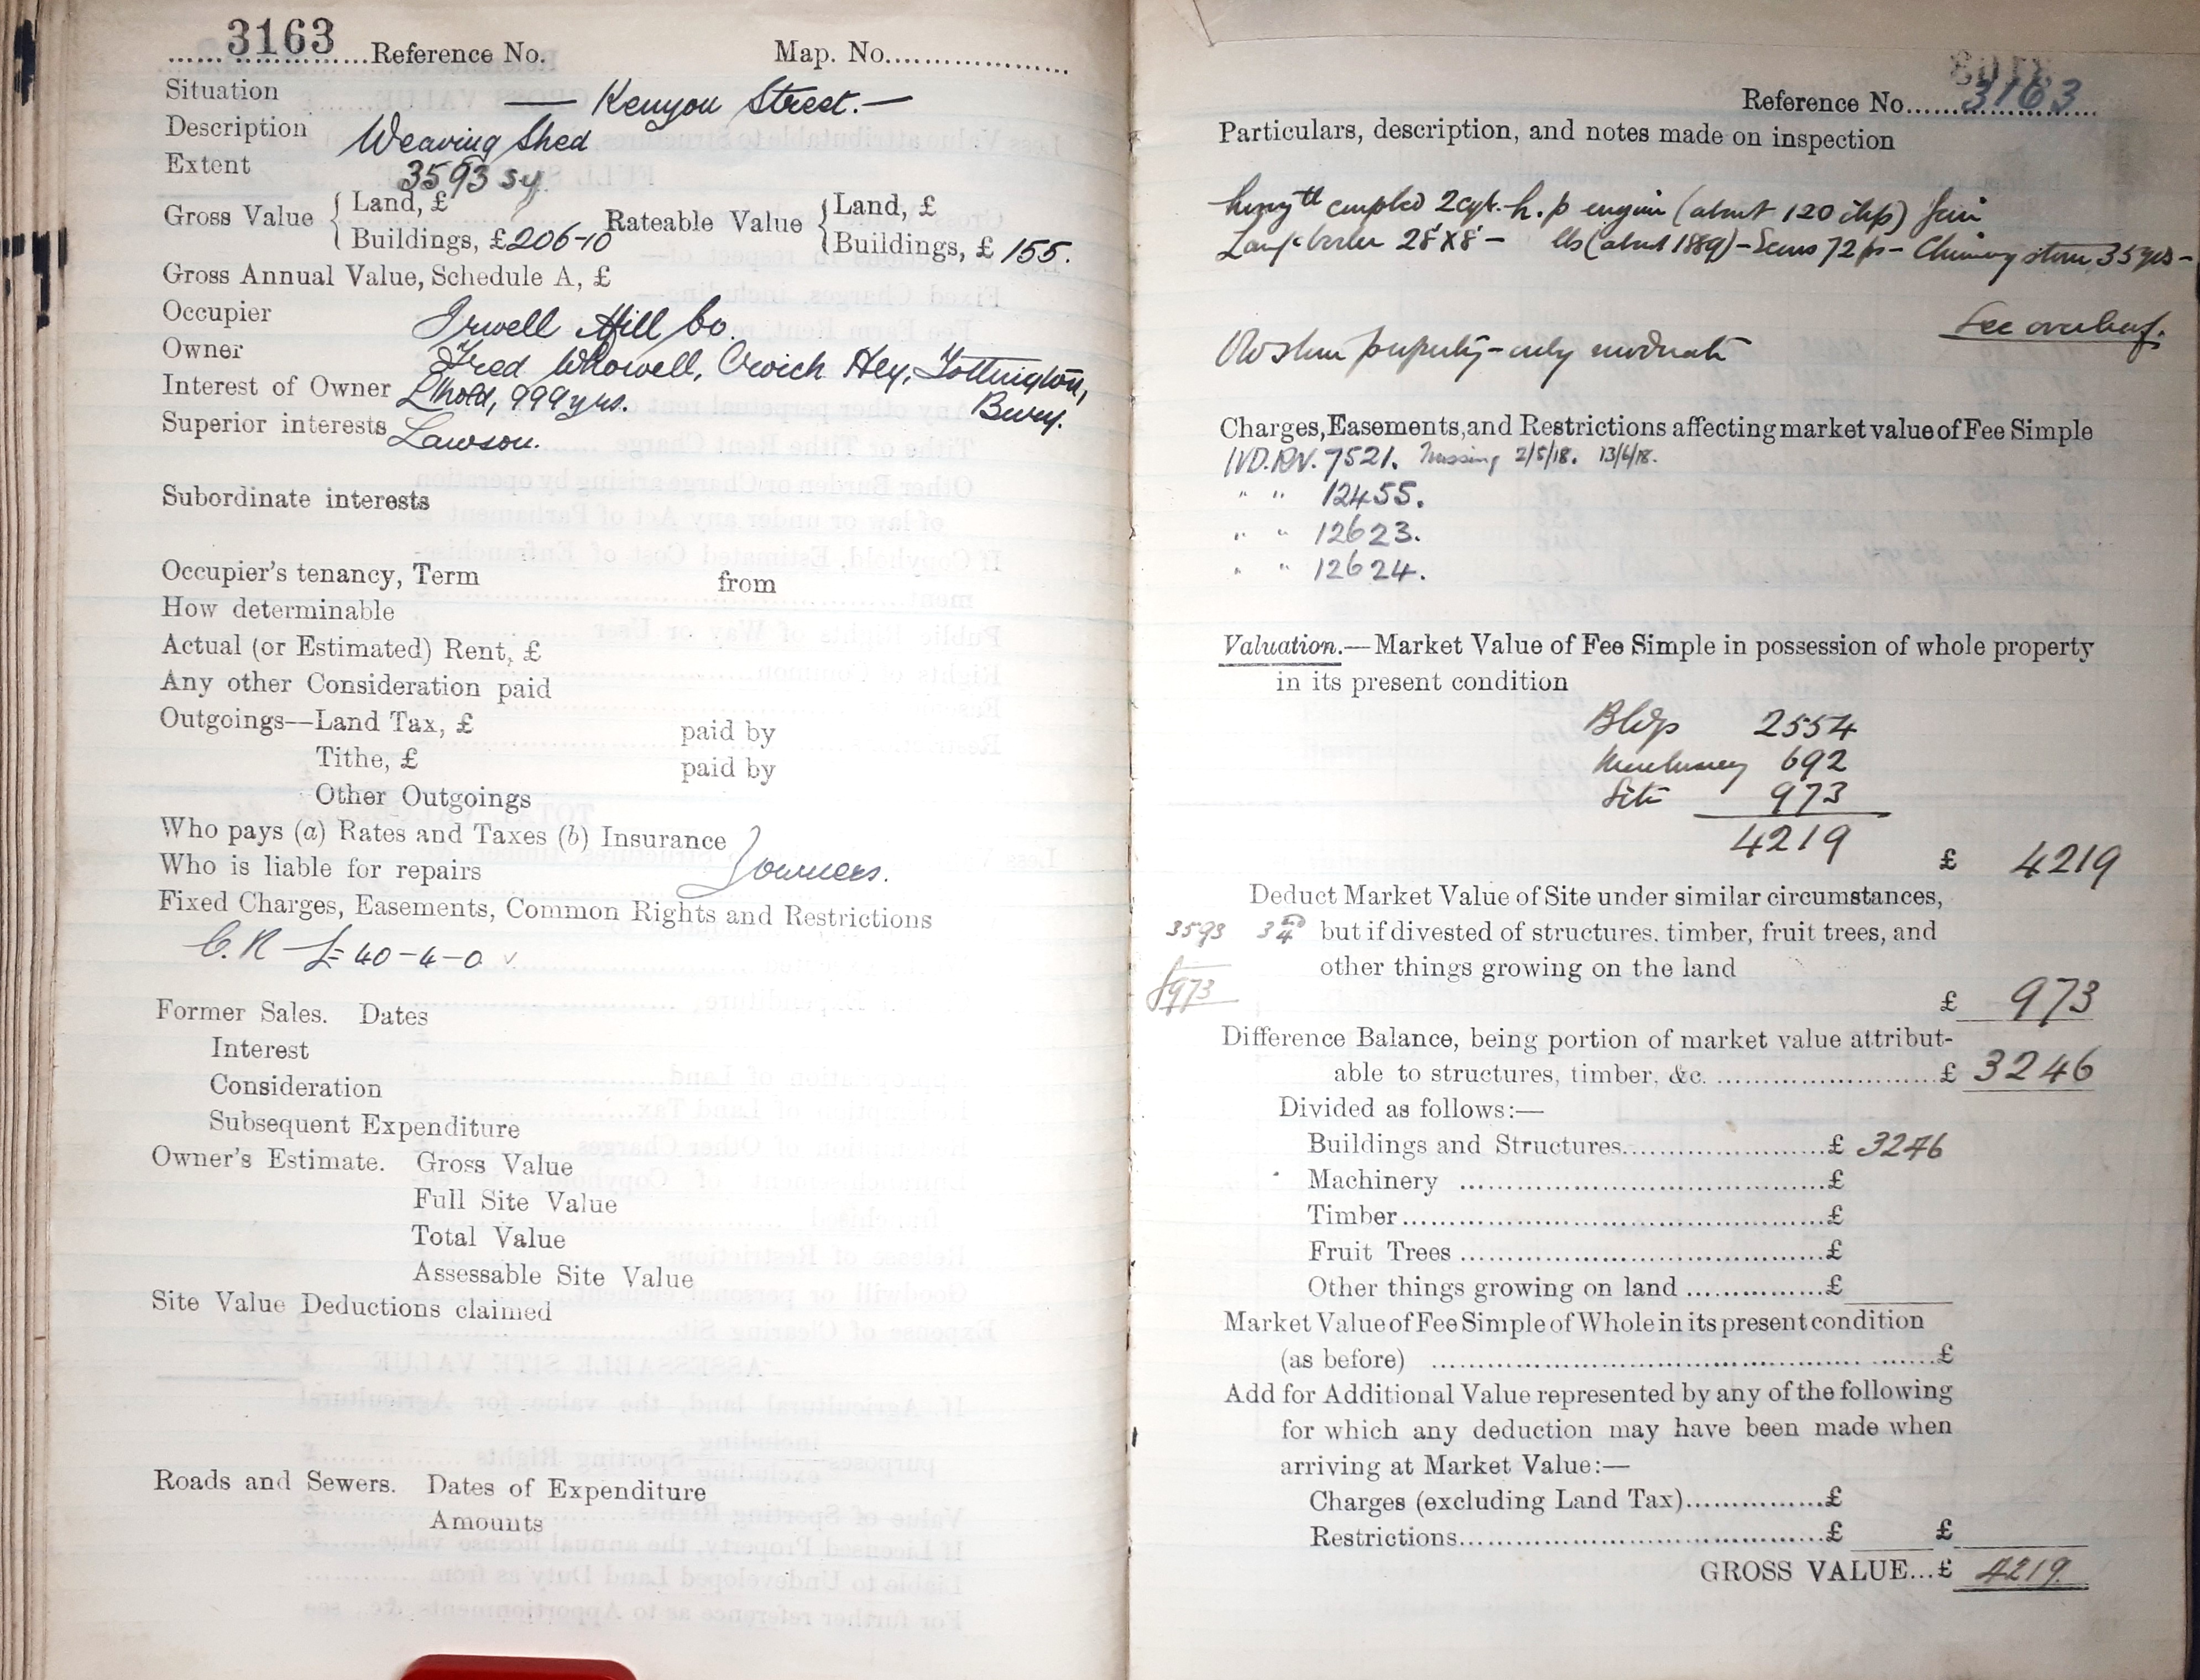 3163 Reference No. Map. No.
Situation — Kenyon Street. —
Description Weaving Shed
Extent 3593 sy
Gross Value { Land, £ Rateable Value { Land, £
Buildings, £ 206-10 Buildings, £ 155.
Gross Annual Value, Schedule A, £
Occupier Irwell Mill Co.
Owner Fred Whowell, Crich Hey, Tottington,
Interest of Owner L'hold, 999 yrs. Bury.
Superior interests Lawson.
Subordinate interests
Occupier's tenancy, Term from
How determinable
Actual (or Estimated) Rent, £
Any other Consideration paid
Outgoings—Land Tax, £ paid by
Tithe, £ paid by
Other Outgoings
Who pays (a) Rates and Taxes (b) Insurance
Who is liable for repairs } owners.
Fixed Charges, Easements, Common Rights and Restrictions
C.R £40-4-0
Former Sales. Dates
Interest
Consideration
Subsequent Expenditure
Owner's Estimate. Gross Value
Full Site Value
Total Value
Assessable Site Value
Site Value Deductions claimed
Roads and Sewers. Dates of Expenditure
Amounts
Reference No. 3163
Particulars, description, and notes made on inspection
coupled 2 cyl. h.p engine (about 120 ihp) fair
Lancs boiler 28'x8' - lbs (about 1889) - 72 - Chimney stone 35 yds -
See overleaf.
Old stone property - only moderate
Charges, Easements, and Restrictions affecting market value of Fee Simple
IVD.RV. 7521. Missing 2/5/18. 13/6/18.
" " 12455.
" " 12623.
" " 12624.
Valuation.—Market Value of Fee Simple in possession of whole property
in its present condition
Bldgs 2554
Machinery 692
Site 973
4219
£ 4219
Deduct Market Value of Site under similar circumstances,
3593 3¼ but if divested of structures. timber, fruit trees, and
other things growing on the land
£973
£ 973
Difference Balance, being portion of market value attribut-
able to structures, timber, &c. £ 3246
Divided as follows:—
Buildings and Structures £ 3246
Machinery £
Timber £
Fruit Trees £
Other things growing on land £
Market Value of Fee Simple of Whole in its present condition
(as before) £
Add for Additional Value represented by any of the following
for which any deduction may have been made when
arriving at Market Value:—
Charges (excluding Land Tax) £
Restrictions £ £
GROSS VALUE...£ 4219.